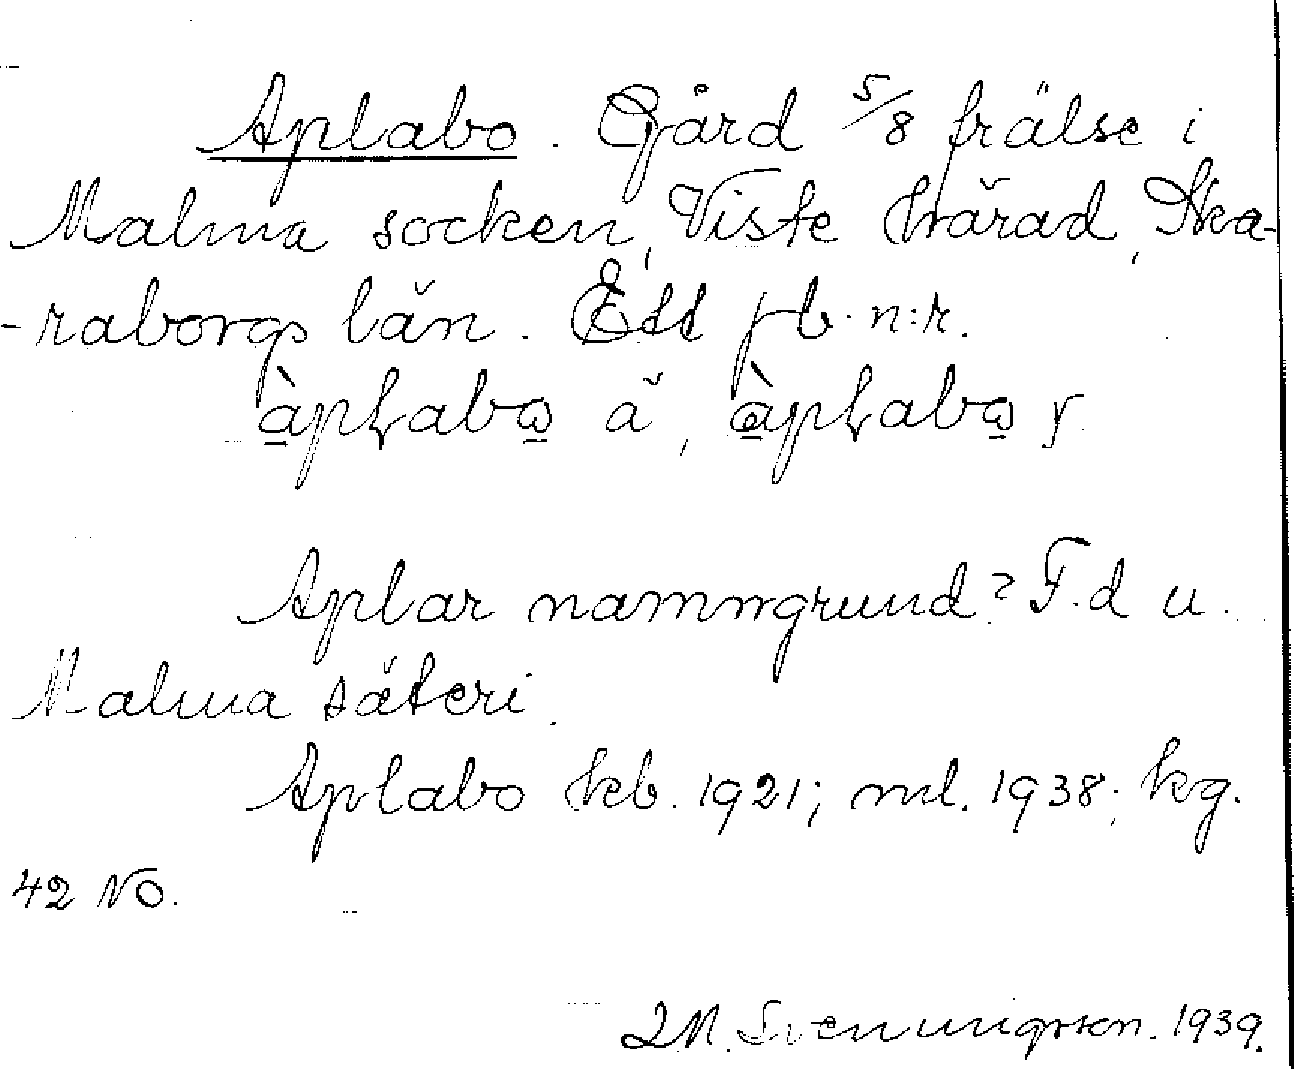 Aplabo. Gård 5/8 frälse i
Malma socken, Viste härad, Ska-
-raborgs län. Ett jb. n:r.
àpłabo̲ ä, àpłabo̲ y
Aplar namngrund? F.d u.
Malma säteri.
Aplabo kb. 1921; ml. 1938; kg.
42 NO.
Svenungsson. 1939.